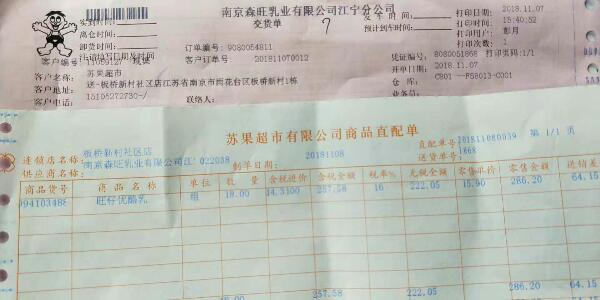 南京森旺乳业有限公司江宁分公司
交货单
7
实到时间:
离仓时间:
卸货时间:
发车时间:
预计到车时间:
打印日期: 2018.11.07
打印时间: 15:40:52
打印用户: 彭月
打印次数: 1
订单编号: 9080054811
客户订单号 201811070012
凭证编码: 8080051868 页码:1/1
开单日期: 2018.11.07
客户名称: 苏果超市
仓库: C801
客户地址: 送-板桥新村社区店江苏省南京市雨花台区板桥新村1栋
业务员:
客户电话: 15105272730-/
联络人:
苏果超市有限公司商品直配单
直配单号: 201811080039 第 1/1 页
送货单号: 1868
连锁店名称: 板桥新村社区店
供应商名称: 南京森旺乳业有限公司江 022038
制单日期: 20181108
商品货号 商品名称 单位 数量 含税进价 含税金额 税率% 无税金额 零售单价 零售金额 进销差
094103488 旺仔优酪乳 组 18.00 14.3100 257.58 16 222.05 15.90 286.20 64.15
18.00 257.58 222.05 286.20 64.15